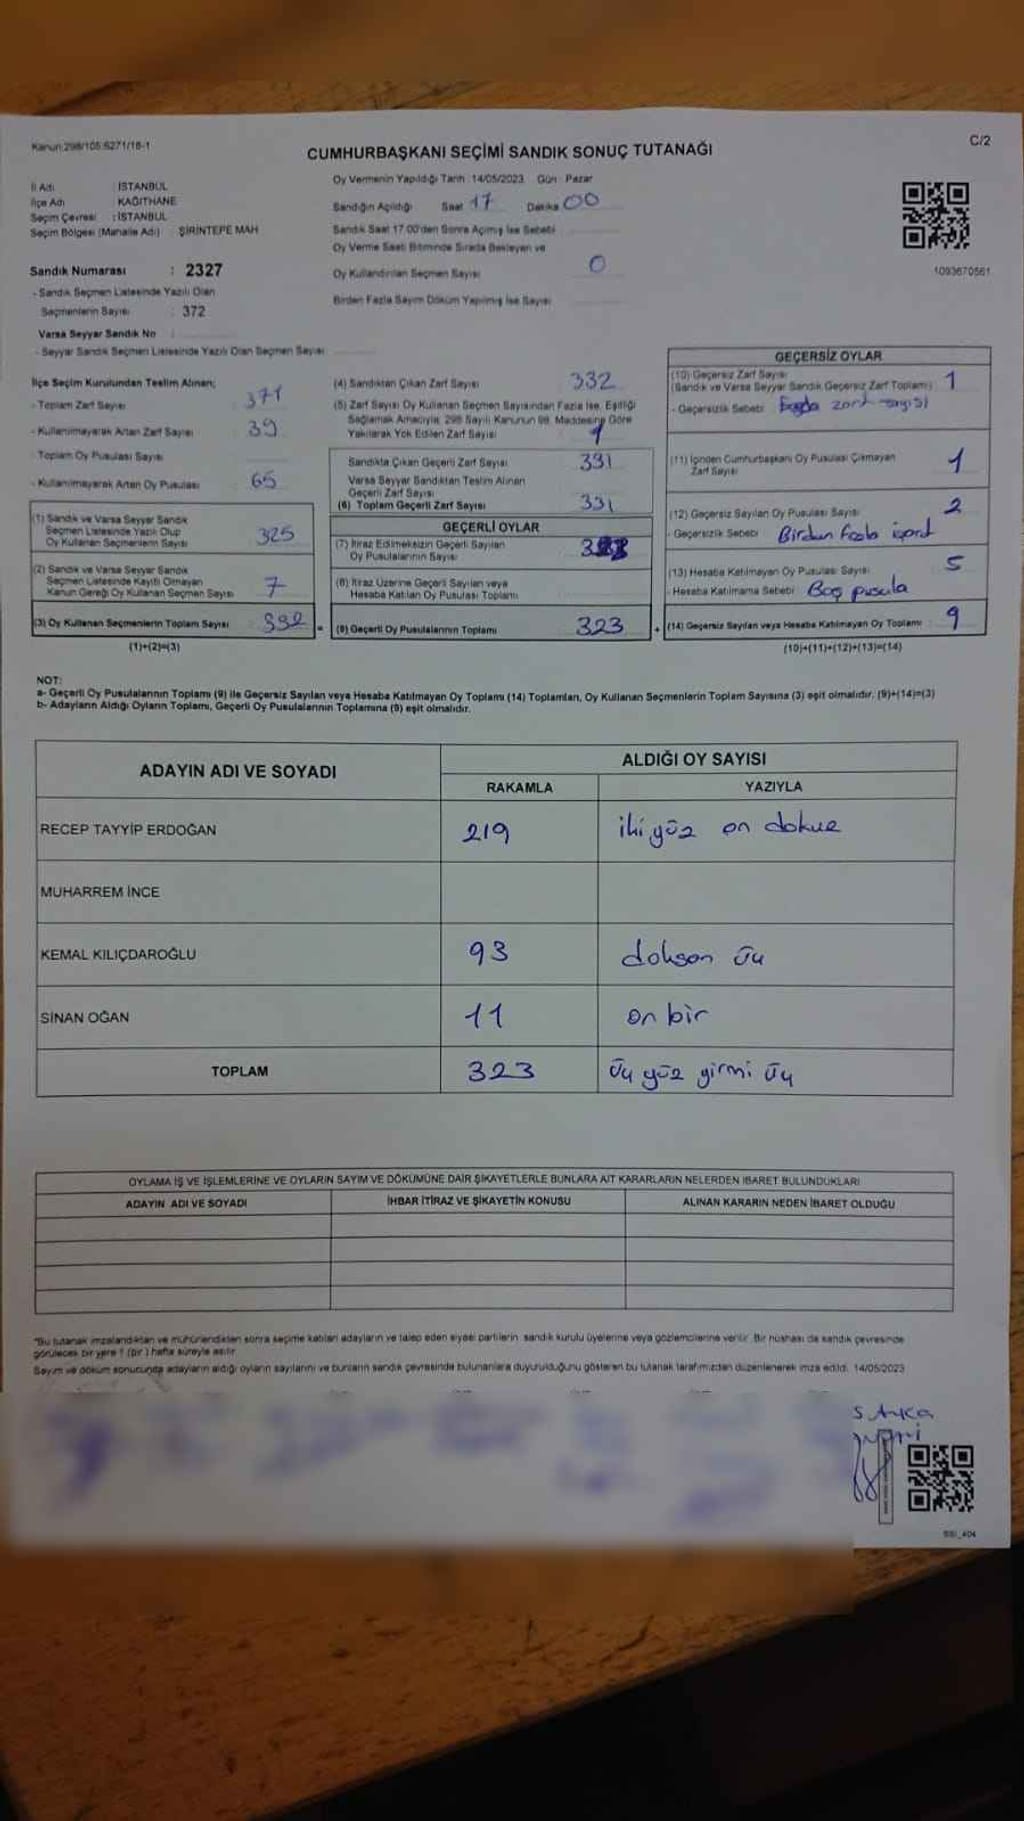 Kanun:298/105:6271/18-1
C/2
CUMHURBAŞKANI SEÇİMİ SANDIK SONUÇ TUTANAĞI
İl Adı : İSTANBUL
İlçe Adı : KAĞITHANE
Seçim Çevresi : İSTANBUL
Seçim Bölgesi (Mahalle Adı) : ŞİRİNTEPE MAH
Sandık Numarası : 2327
- Sandık Seçmen Listesinde Yazılı Olan
Seçmenlerin Sayısı : 372
Varsa Seyyar Sandık No :
- Seyyar Sandık Seçmen Listesinde Yazılı Olan Seçmen Sayısı
Oy Vermenin Yapıldığı Tarih :14/05/2023 Gün : Pazar
Sandığın Açıldığı Saat 17 Dakika 00
Sandık Saat 17.00'den Sonra Açılmış İse Sebebi
Oy Verme Saati Bitiminde Sırada Bekleyen ve
Oy Kullandırılan Seçmen Sayısı 0
Birden Fazla Sayım Döküm Yapılmış İse Sayısı
1093670561
İlçe Seçim Kurulundan Teslim Alınan;
- Toplam Zarf Sayısı 371
- Kullanılmayarak Artan Zarf Sayısı 39
- Toplam Oy Pusulası Sayısı
- Kullanılmayarak Artan Oy Pusulası 65
(1) Sandık ve Varsa Seyyar Sandık
Seçmen Listesinde Yazılı Olup
Oy Kullanan Seçmenlerin Sayısı 325
(2) Sandık ve Varsa Seyyar Sandık
Seçmen Listesinde Kayıtlı Olmayan
Kanun Gereği Oy Kullanan Seçmen Sayısı 7
(3) Oy Kullanan Seçmenlerin Toplam Sayısı 332 =
(1)+(2)=(3)
(4) Sandıktan Çıkan Zarf Sayısı 332
(5) Zarf Sayısı Oy Kullanan Seçmen Sayısından Fazla İse, Eşitliği
Sağlamak Amacıyla, 298 Sayılı Kanunun 98. Maddesine Göre
Yakılarak Yok Edilen Zarf Sayısı 1
Sandıkta Çıkan Geçerli Zarf Sayısı 331
Varsa Seyyar Sandıktan Teslim Alınan
Geçerli Zarf Sayısı
(6) Toplam Geçerli Zarf Sayısı 331
GEÇERLİ OYLAR
(7) İtiraz Edilmeksizin Geçerli Sayılan
Oy Pusulalarının Sayısı
(8) İtiraz Üzerine Geçerli Sayılan veya
Hesaba Katılan Oy Pusulası Toplamı
(9) Geçerli Oy Pusulalarının Toplamı 323 +
GEÇERSİZ OYLAR
(10) Geçersiz Zarf Sayısı
(Sandık ve Varsa Seyyar Sandık Geçersiz Zarf Toplamı) 1
- Geçersizlik Sebebi Fazla zarf sayısı
(11) İçinden Cumhurbaşkanı Oy Pusulası Çıkmayan
Zarf Sayısı 1
(12) Geçersiz Sayılan Oy Pusulası Sayısı 2
- Geçersizlik Sebebi Birden fazla işaret
(13) Hesaba Katılmayan Oy Pusulası Sayısı 5
- Hesaba Katılmama Sebebi Boş pusula
(14) Geçersiz Sayılan veya Hesaba Katılmayan Oy Toplamı 9
(10)+(11)+(12)+(13)=(14)
NOT:
a- Geçerli Oy Pusulalarının Toplamı (9) ile Geçersiz Sayılan veya Hesaba Katılmayan Oy Toplamı (14) Toplamları, Oy Kullanan Seçmenlerin Toplam Sayısına (3) eşit olmalıdır. (9)+(14)=(3)
b- Adayların Aldığı Oyların Toplamı, Geçerli Oy Pusulalarının Toplamına (9) eşit olmalıdır.
ADAYIN ADI VE SOYADI
ALDIĞI OY SAYISI
RAKAMLA YAZIYLA
RECEP TAYYİP ERDOĞAN 219 iki yüz on dokuz
MUHARREM İNCE
KEMAL KILIÇDAROĞLU 93 doksan üç
SİNAN OĞAN 11 on bir
TOPLAM 323 üç yüz yirmi üç
OYLAMA İŞ VE İŞLEMLERİNE VE OYLARIN SAYIM VE DÖKÜMÜNE DAİR ŞİKAYETLERLE BUNLARA AİT KARARLARIN NELERDEN İBARET BULUNDUKLARI
ADAYIN ADI VE SOYADI İHBAR İTİRAZ VE ŞİKAYETİN KONUSU ALINAN KARARIN NEDEN İBARET OLDUĞU
*Bu tutanak imzalandıktan ve mühürlendikten sonra seçime katılan adayların ve talep eden siyasi partilerin sandık kurulu üyelerine veya gözlemcilerine verilir. Bir nüshası da sandık çevresinde
görülecek bir yere 1 (bir) hafta süreyle asılır.
Sayım ve döküm sonucunda adayların aldığı oyların sayılarını ve bunların sandık çevresinde bulunanlara duyurulduğunu gösteren bu tutanak tarafımızdan düzenlenerek imza edildi. 14/05/2023